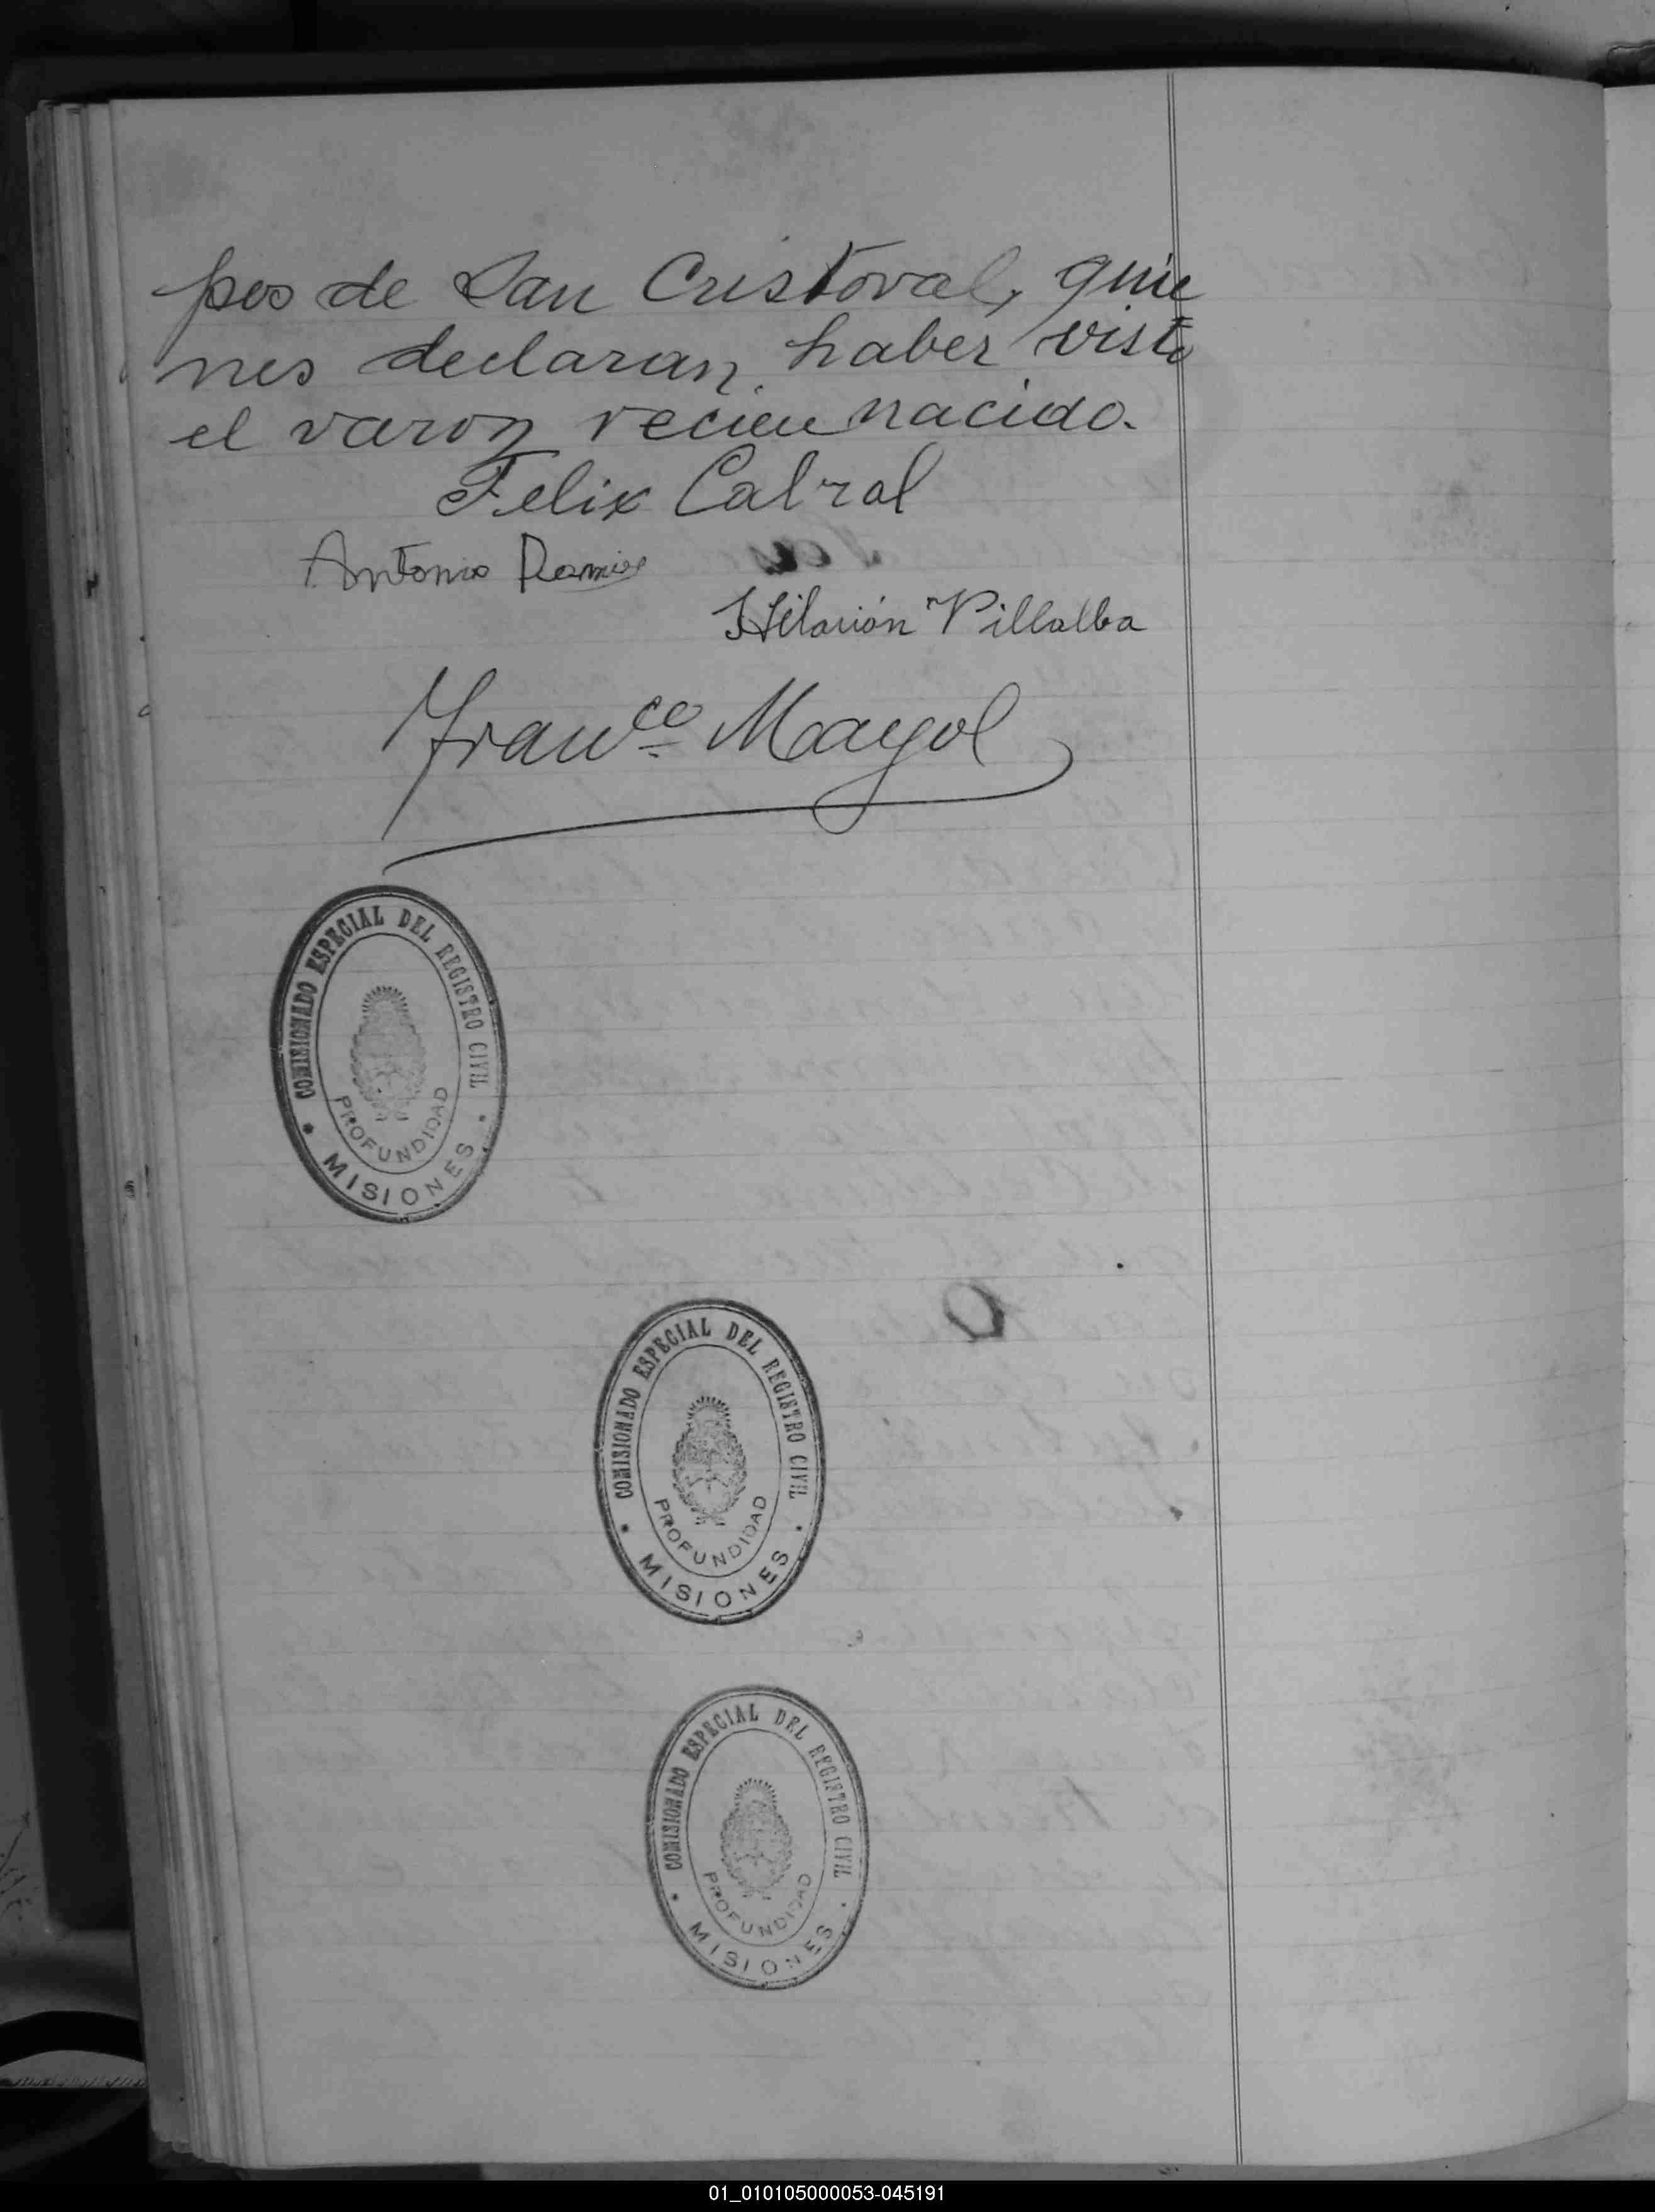 pos de San Cristoval, quie
nes declaran haber visto
el varon recien nacido.
Felix Cabral
Antonio
Hilarión Villalba
Fran.co Mayol
COMISIONADO ESPECIAL DEL REGISTRO CIVIL
PROFUNDIDAD
MISIONES
COMISIONADO ESPECIAL DEL REGISTRO CIVIL
PROFUNDIDAD
MISIONES
COMISIONADO ESPECIAL DEL REGISTRO CIVIL
PROFUNDIDAD
MISIONES
01_010105000053-045191